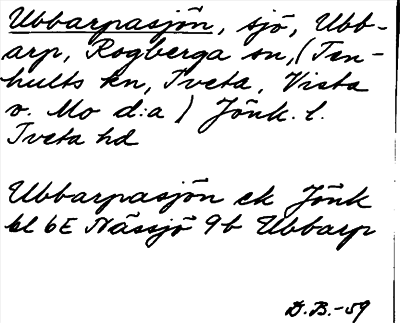 Ubbarpasjön, sjö, Ubb-
arp, Rogberga sn, (Ten-
hults kn, Tveta, Vista
o. Mo d:a) Jönk. l.
Tveta hd
Ubbarpasjön ek Jönk
bl 6E Nässjö 9b Ubbarp
D.B.-59